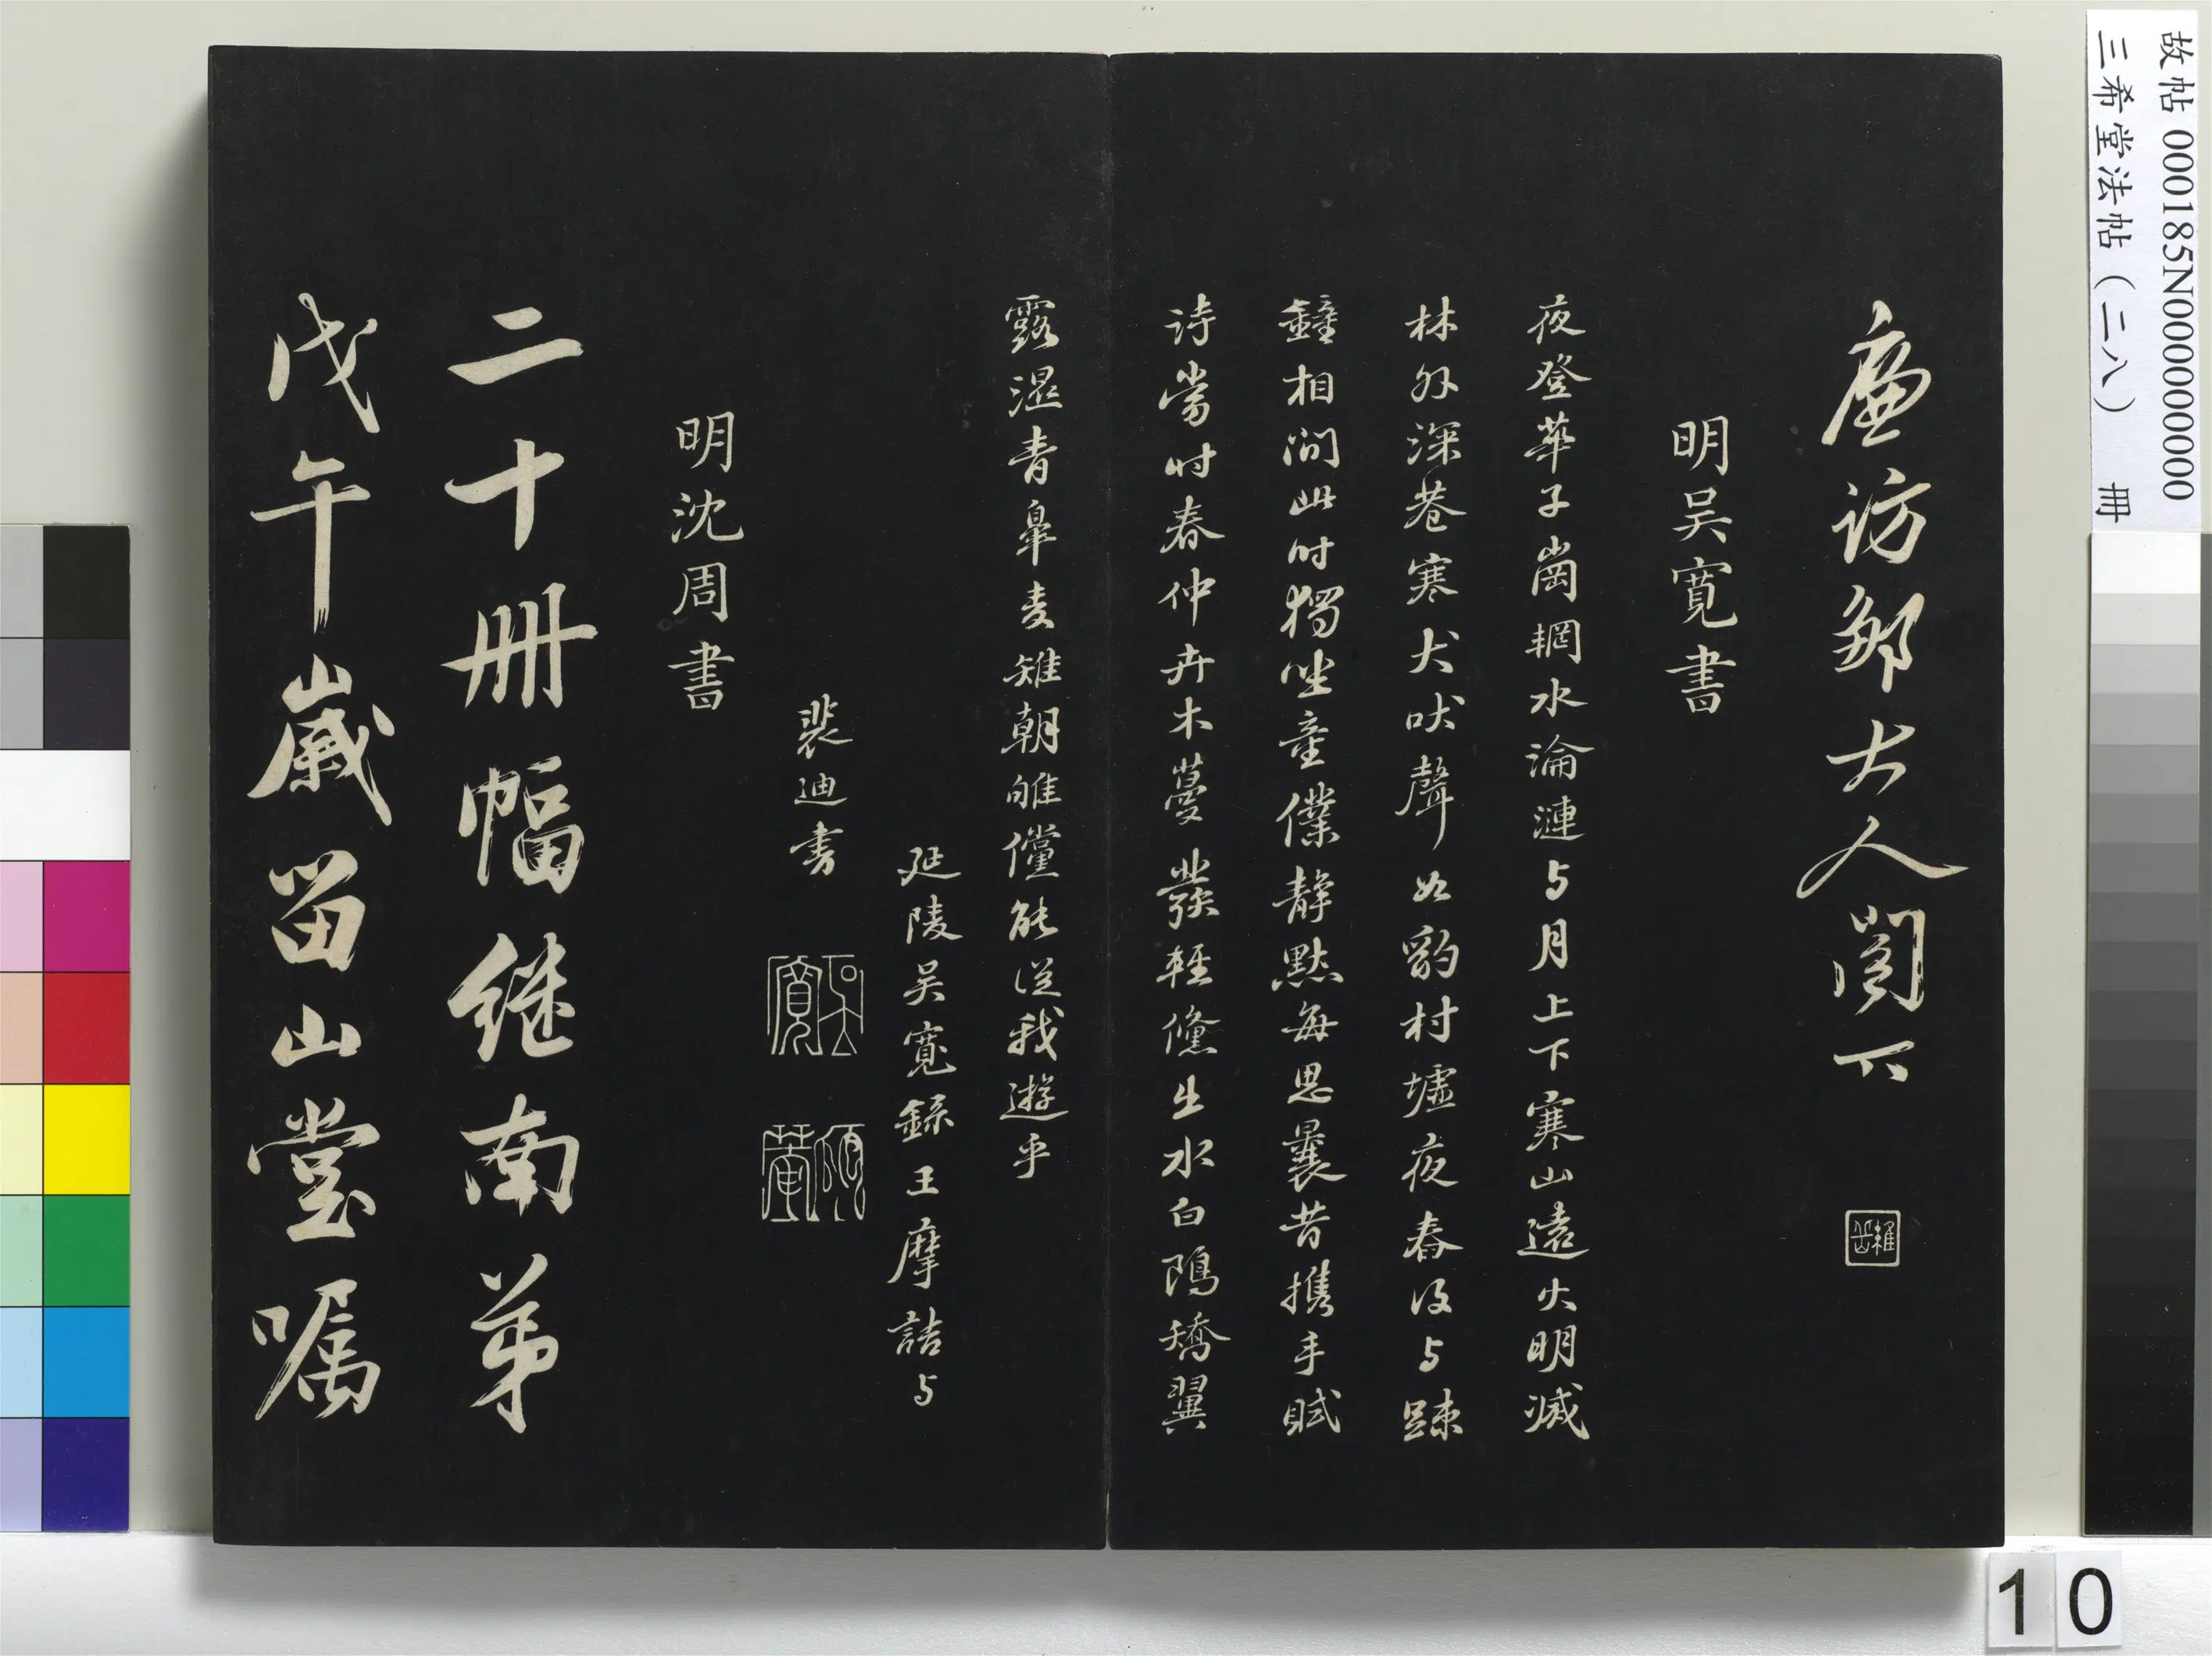 故帖 000185N000000000
三希堂法帖（二八） 冊
廉訪鄒大人閣下
明吳寬書
夜登華子崗輞水淪漣与月上下寒山遠火明滅
林外深巷寒犬吠聲如豹村墟夜舂復与疎
鐘相間此时獨坐童僕靜默每思曩昔携手賦
詩當时春仲卉木蔓發輕鯈出水白鷗矯翼
露濕青皋麦雉朝雊儻能從我遊乎
延陵吴寬錄王摩詰与
裴迪书
吳寬
明沈周書
二十冊幅继南苐
戊午歲留山堂嘱
10